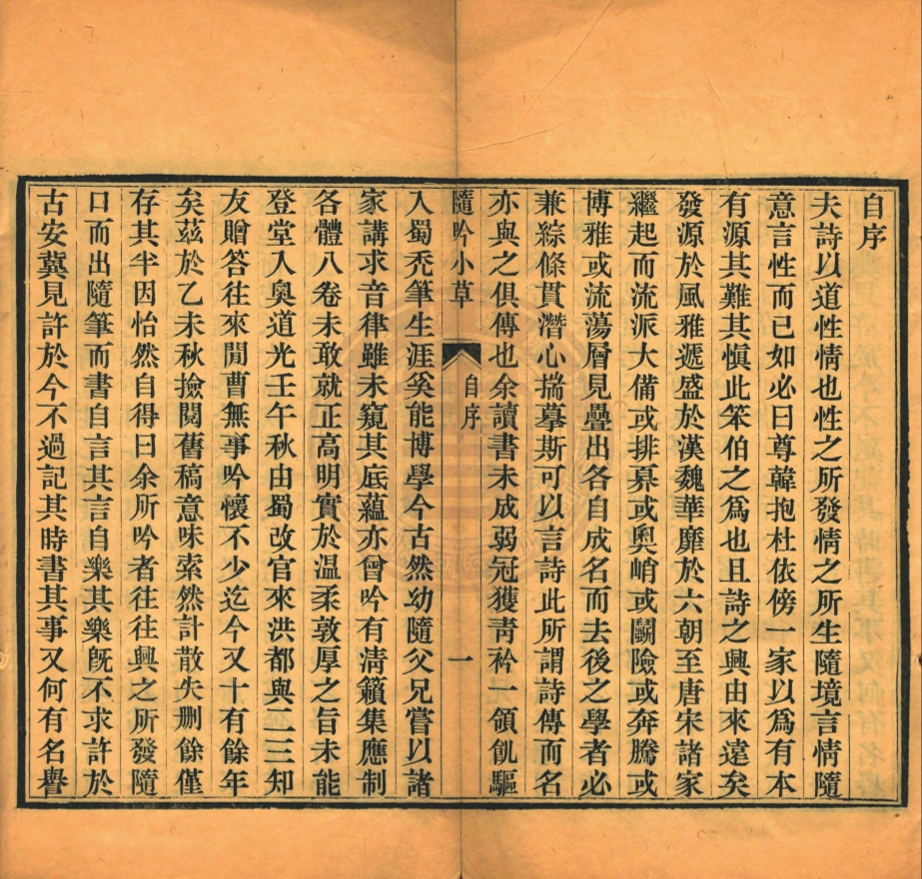 自序
夫詩以道性情也性之所發情之所生隨境言情隨
意言性而已如必曰尊韓抱杜依傍一家以爲有本
有源其難其愼此笨伯之爲也且詩之興由來遠矣
發源於風雅遞盛於漢魏華靡於六朝至唐宋諸家
繼起而流派大備或排奡或奧峭或鬭險或奔騰或
博雅或流蕩層見疊出各自成名而去後之學者必
兼綜條貫潛心揣摹斯可以言詩此所謂詩傳而名
亦與之俱傳也余讀書未成弱冠獲靑衿一領飢驅
隨吟小草
自序
一
入蜀禿筆生涯奚能博學今古然幼隨父兄嘗以諸
家講求音律雖未窺其底蘊亦曾吟有淸籟集應制
各體八卷未敢就正高明實於溫柔敦厚之旨未能
登堂入奧道光壬午秋由蜀改官來洪都與二三知
友贈答往來閒曹無事吟懷不少迄今又十有餘年
矣茲於乙未秋撿閱舊稿意味索然計散失删餘僅
存其半因怡然自得曰余所吟者往往興之所發隨
口而出隨筆而書自言其言自樂其樂旣不求許於
古安冀見許於今不過記其時書其事又何有名譽